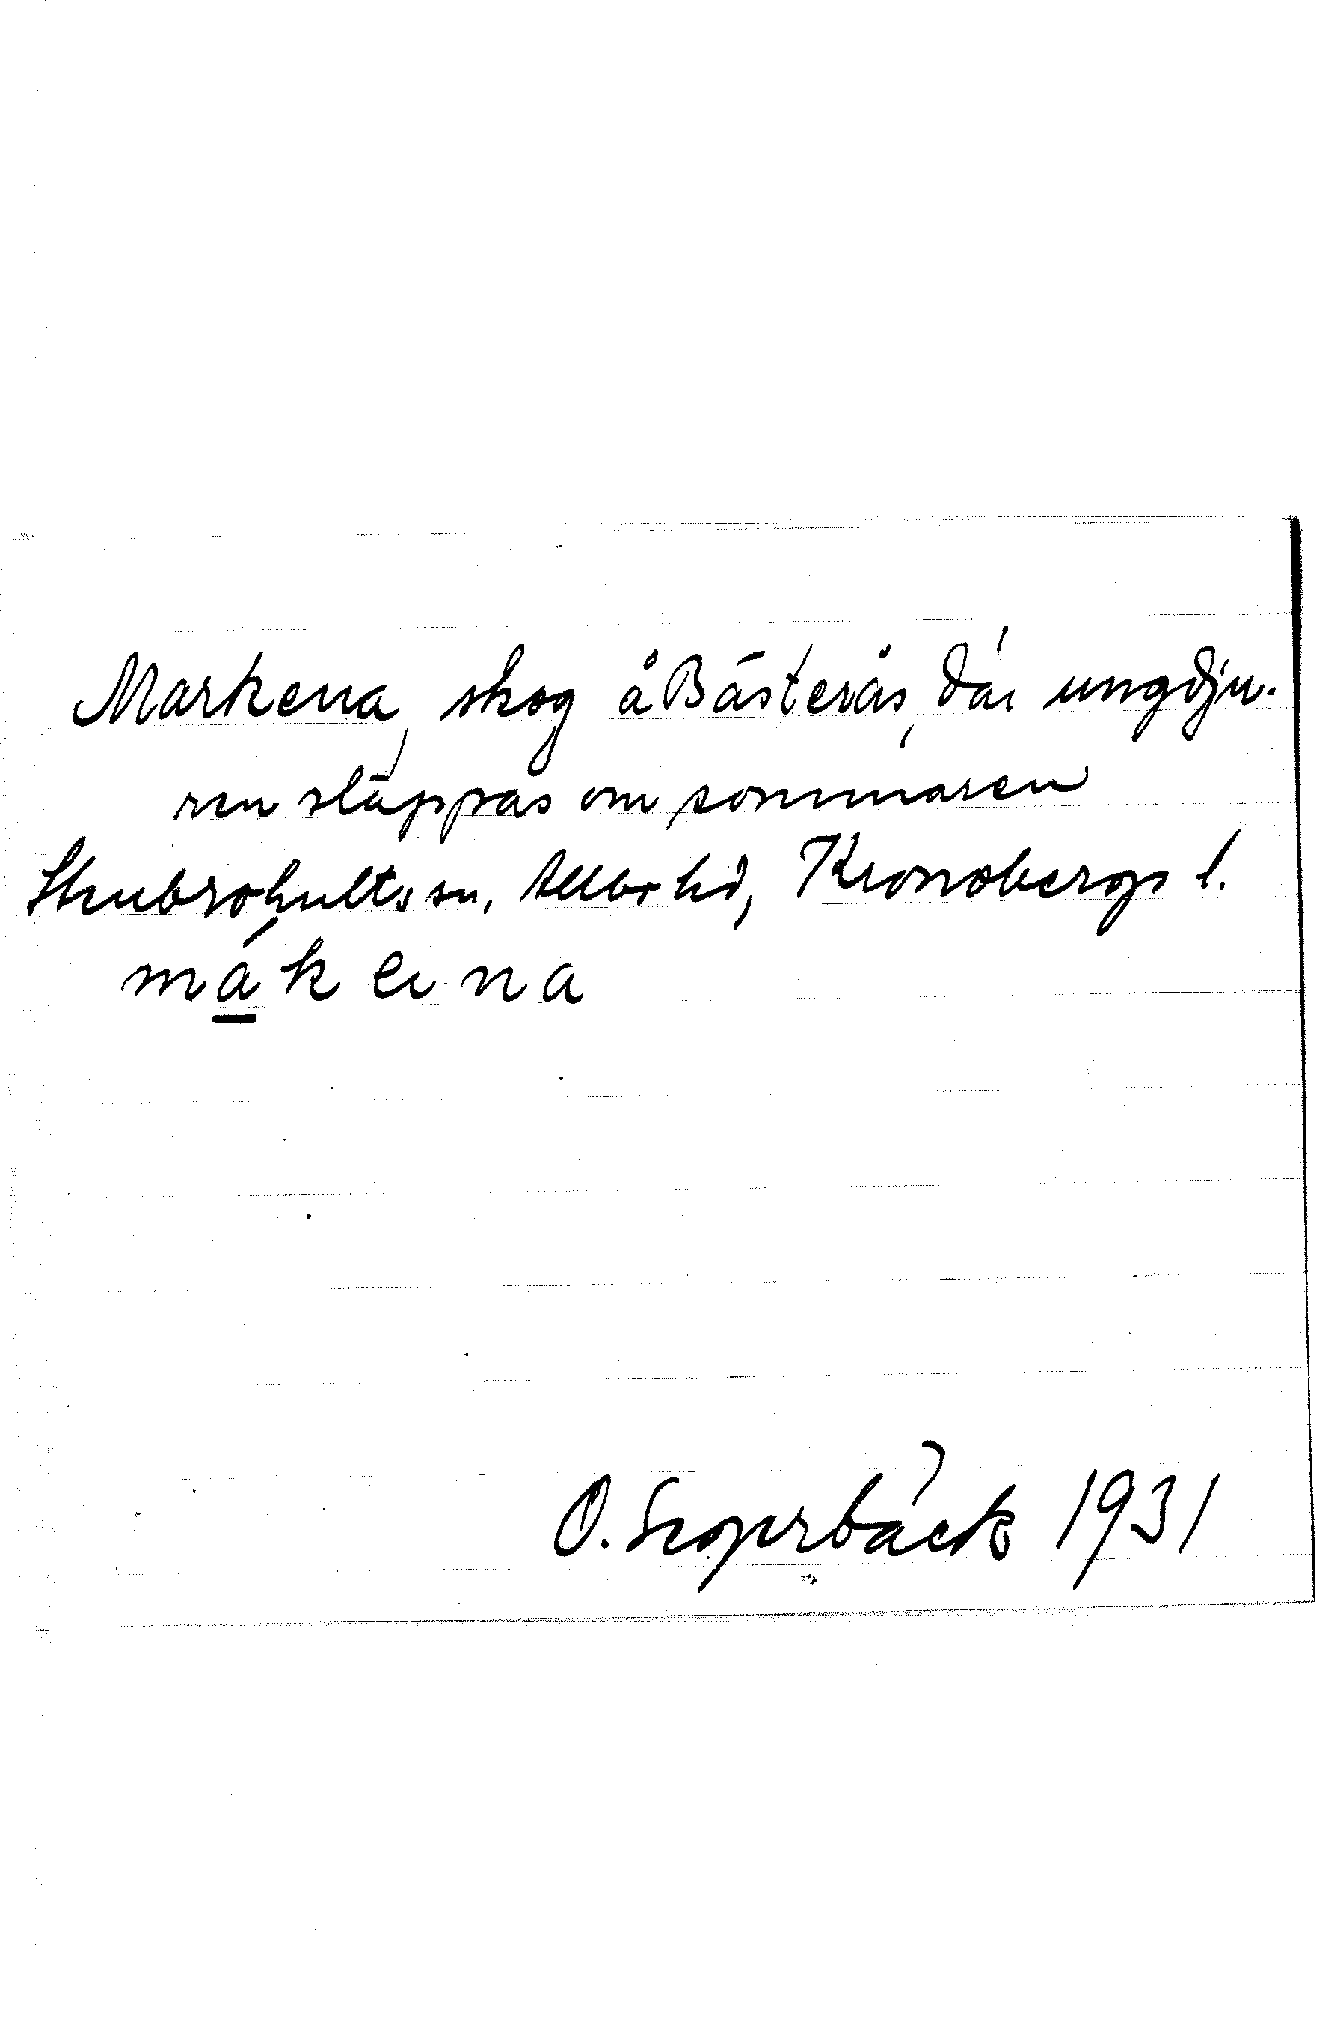 Markena, skog å Bästerås, där ungdju-
ren släppas om sommaren
Skubrohults sn, Allbo hd, Kronobergs l.
mákena
O. Sugerbäck 1931